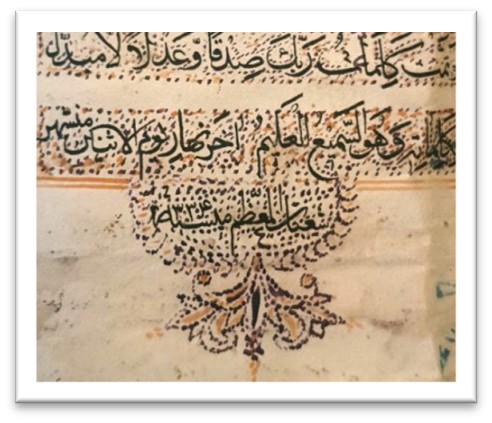 كلمات ربك صدقا وعدلا لا مبدل
لكلماته وهو السميع العليم آخر نهار يوم الاثنين من شهر
شعبان المعظم سنة